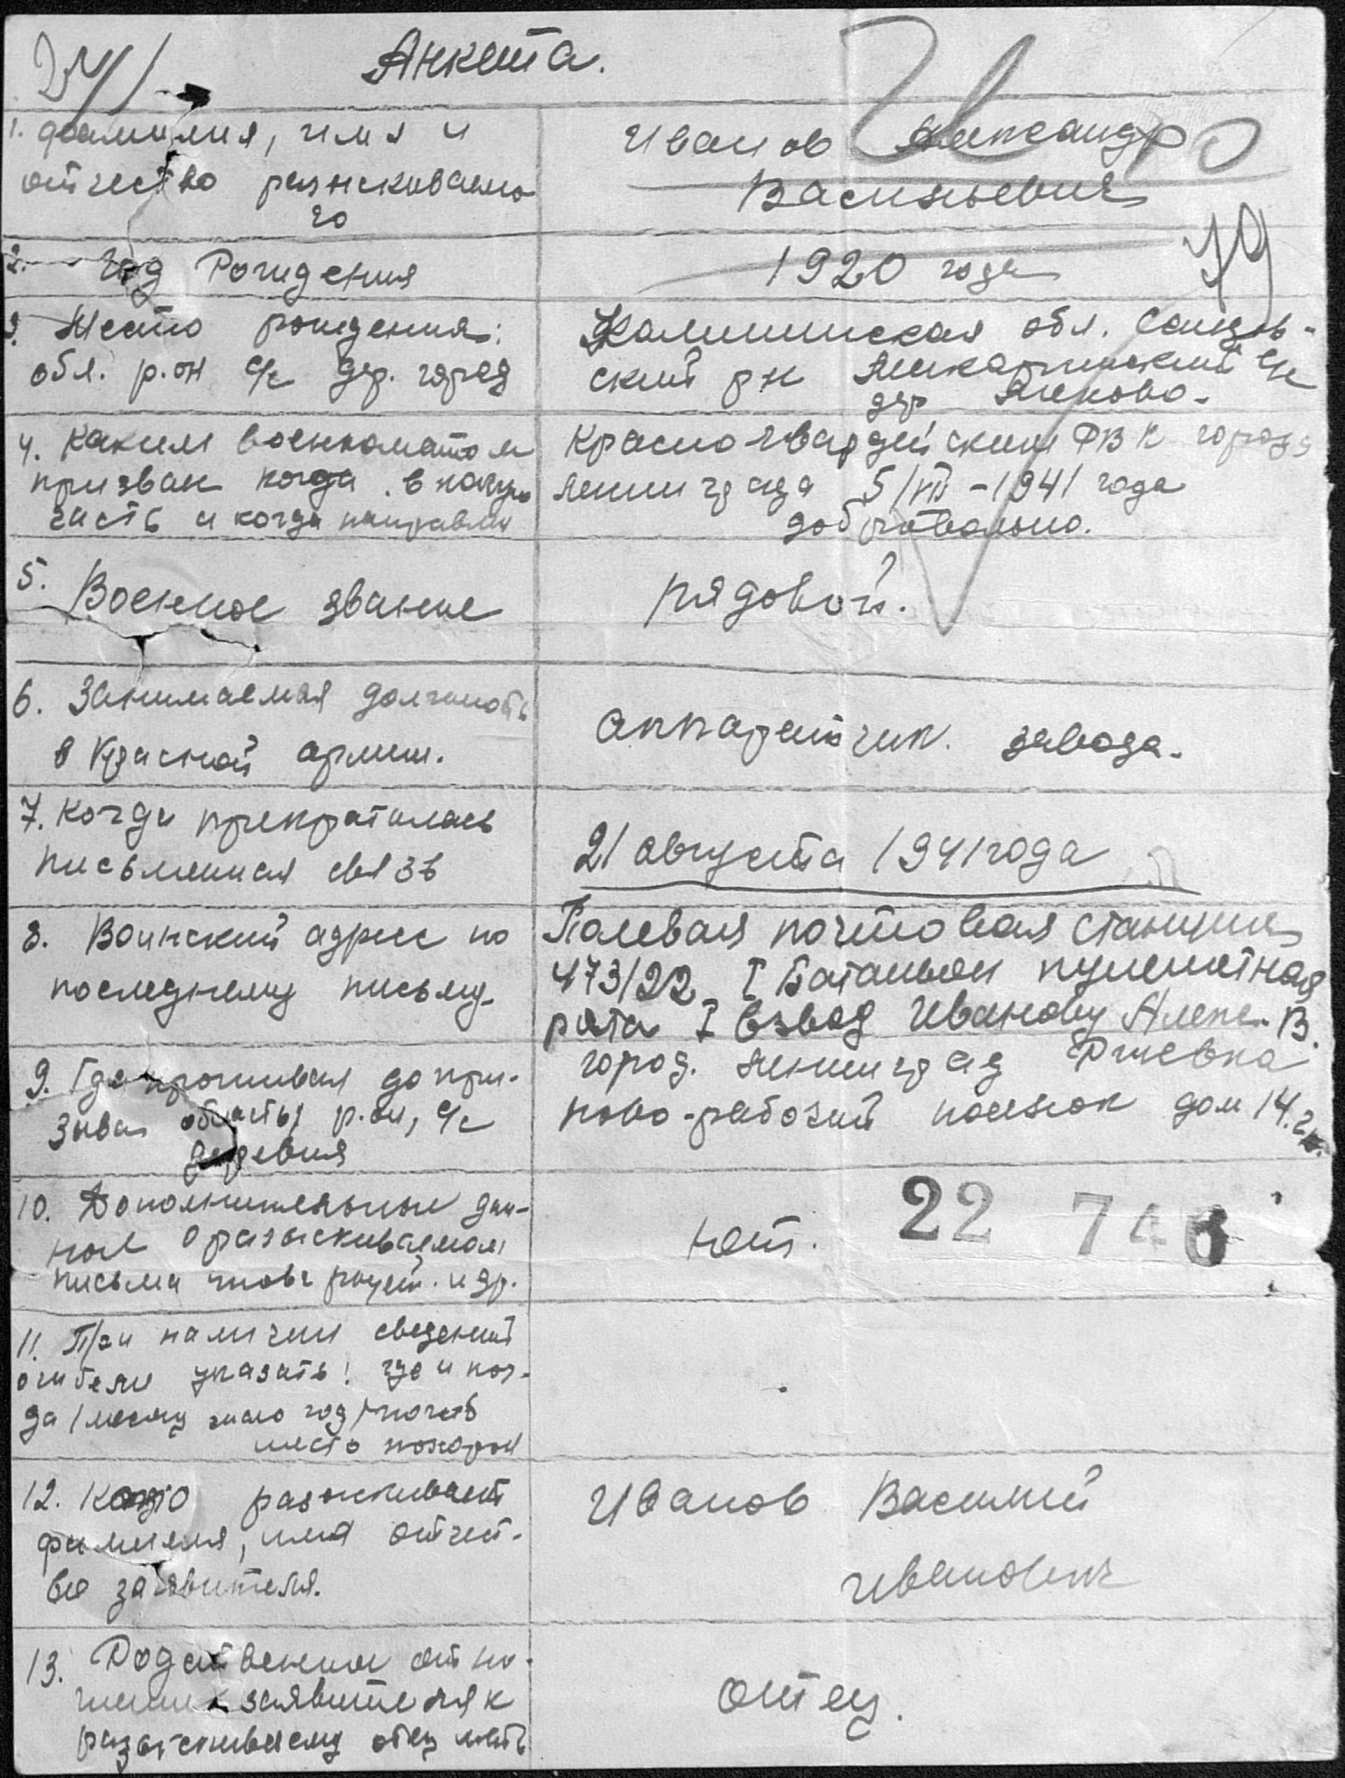 Анкета.
1. фамилия, имя и
отчество разыскиваемо
го
Иванов Александр
Васильевич
2. Год Рождения
1920 года
79
3. Место рождения:
обл. р.он с/с дер. город
Калининская обл. Сандов-
ский р-н с/с
дер
4. Каким военкоматом
призван когда в какую
часть и когда направлен
Красногвардейским РВК города
Ленинграда 5/VII-1941 года
добровольно.
5. Военное звание
рядовой.
6. Занимаемая должность
в Красной армии.
аппаратчик завода.
7. Когда прекратилась
письменная связь
21 августа 1941 года
8. Воинский адрес по
последнему письму.
Полевая почтовая станция
473/22 I Батальон пулеметная
рота I взвод Иванову Алекс. В.
9. Где проживал до при-
зыва область, р.он, с/с
деревня
город. Ленинград Ржевка
ново-рабочий поселок дом 14.
10. Дополнительные дан-
ные о разыскиваемом
письма и др.
нет.
22 746
11. При наличии сведений
о гибели указать: где и ког-
да /месяц число год/
место похорон
12. Кто разыскивает
фамилия, имя отчест-
во заявителя.
Иванов Василий
Иванович
13. Родственные отно-
шения заявителя к
разыскиваемому отец мать
отец.